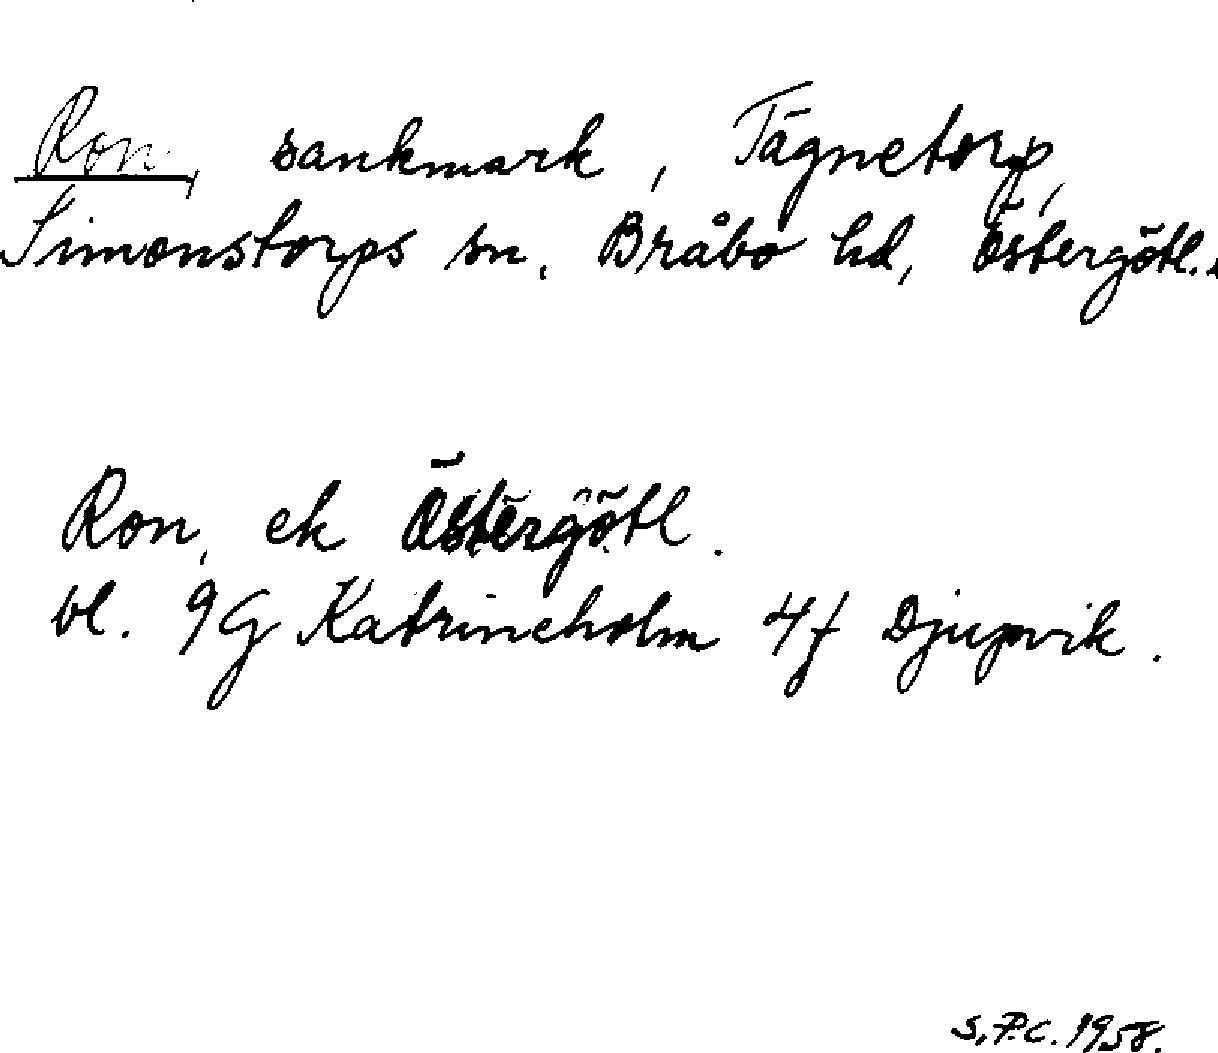 Ron, sankmark, Tägnetorp,
Simonstorps sn, Bråbo hd, Östergötl..
Ron, ek Östergötl.
bl. 9G Katrineholm 4f Djupvik.
S.P.C. 1958.